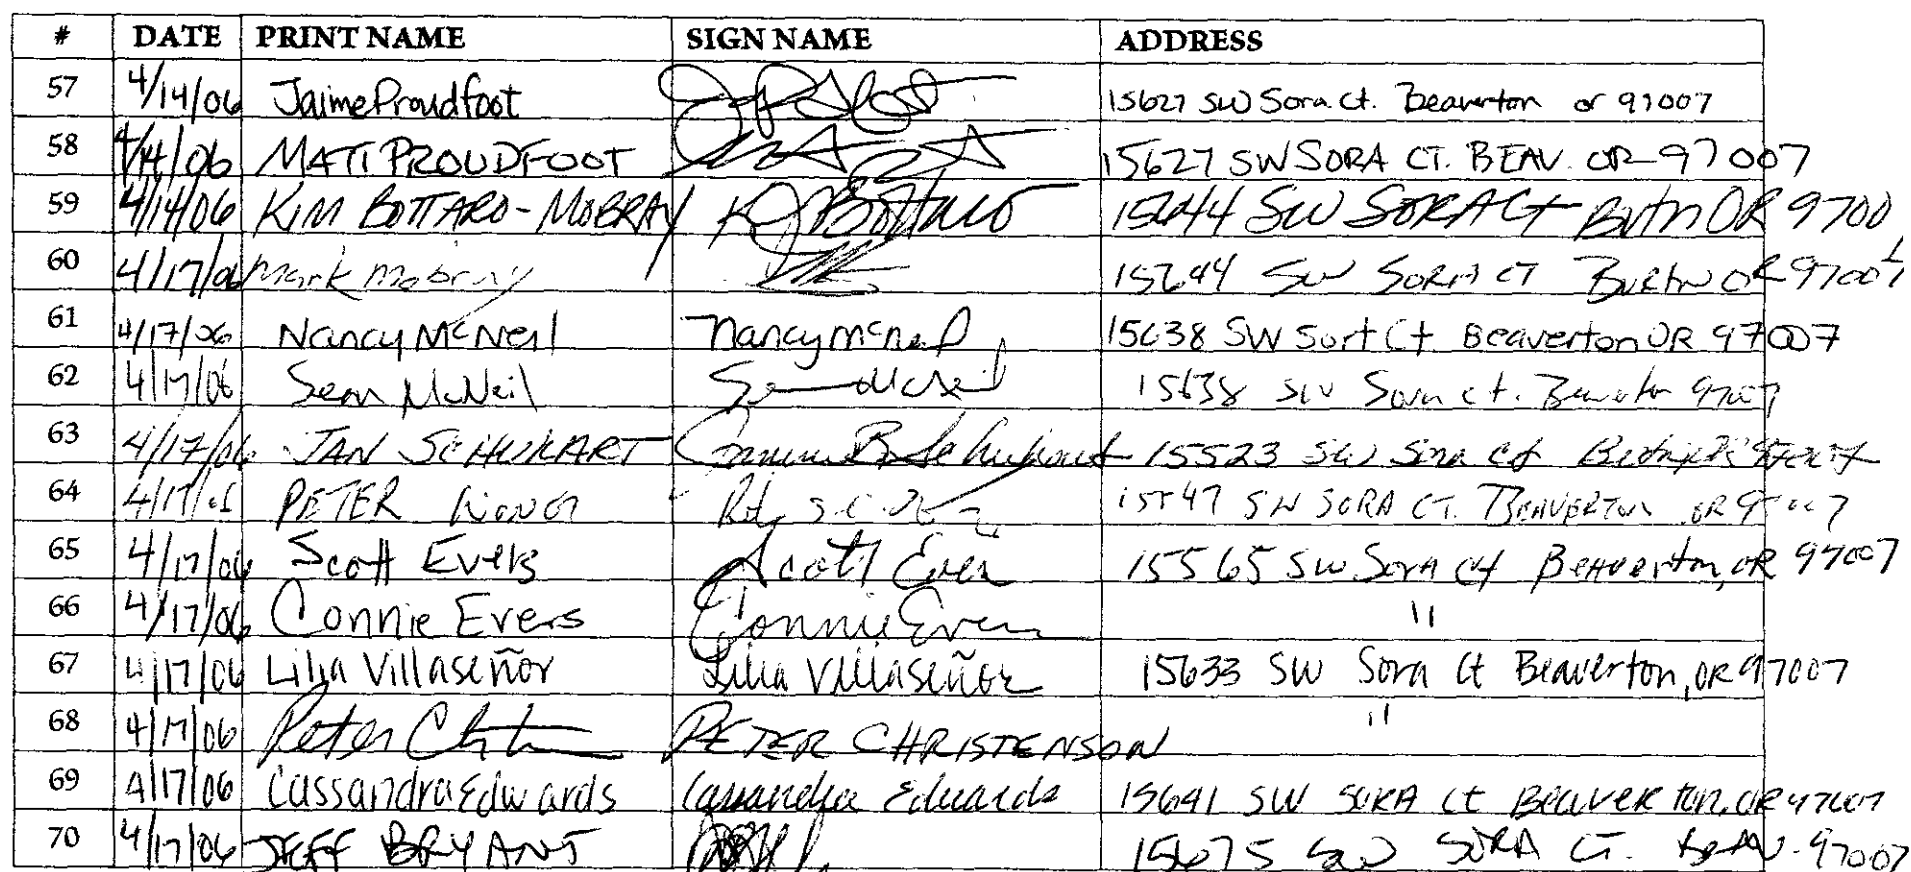 # DATE PRINT NAME SIGN NAME ADDRESS
57 4/14/06 Jaime Proudfoot 15627 SW Sora Ct. Beaverton or 97007
58 4/14/06 MATT PROUDFOOT 15627 SW SORA CT. BEAV. OR 97007
59 4/14/06 KIM BOTTARO-MOBRAY K Bottaro 15644 SW SORA Ct Bvtn OR 9700
60 4/17/06 Mark Mobray 15644 SW SORA CT OR 97007
61 4/17/06 Nancy McNeil Nancy McNeil 15638 SW Sort Ct. Beaverton OR 97007
62 4/17/06 Sean McNeil Sean McNeil 15638 SW Sora ct. 97007
63 4/17/06 JAN SCHUKART 15523 SW Sora Ct
64 4/17/06 PETER 15547 SW SORA CT. BEAVERTON OR 97007
65 4/17/06 Scott Evers Scott Evers 15565 SW Sora Ct Beaverton, OR 97007
66 4/17/06 Connie Evers Connie Evers "
67 4/17/06 Lilia Villaseñor Lilia Villaseñor 15633 SW Sora Ct Beaverton, OR 97007
68 4/17/06 Peter PETER CHRISTENSON "
69 4/17/06 Cassandra Edwards Cassandra Edwards 15641 SW SORA Ct Beaverton, OR 97007
70 4/17/06 JEFF BRYANT 15675 SW SORA CT. BEAV. 97007